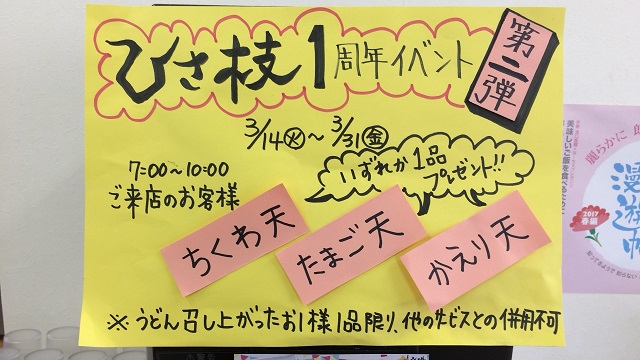 ひさ枝1周年イベント
第二弾
3/14㊋〜3/31㊎
7:00〜10:00
ご来店のお客様
いずれか1品
プレゼント!!
ちくわ天
たまご天
かえり天
※うどん召し上がったお1様1品限り、他のサービスとの併用不可
麗らかに
美味しいご飯を食べるために
2017
春編